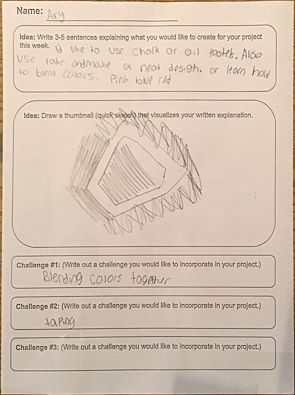 Name: Ary
Idea: Write 3-5 sentences explaining what you would like to create for your project
this week. I'd like to use chalk or oil pastels. Also
use take andmake a neat design. or learn how
to blend colors. Pink blue red
Idea: Draw a thumbnail (quick sketch) that visualizes your written explanation.
Challenge #1: (Write out a challenge you would like to incorporate in your project.)
Blending colors together
Challenge #2: (Write out a challenge you would like to incorporate in your project.)
taping
Challenge #3: (Write out a challenge you would like to incorporate in your project.)